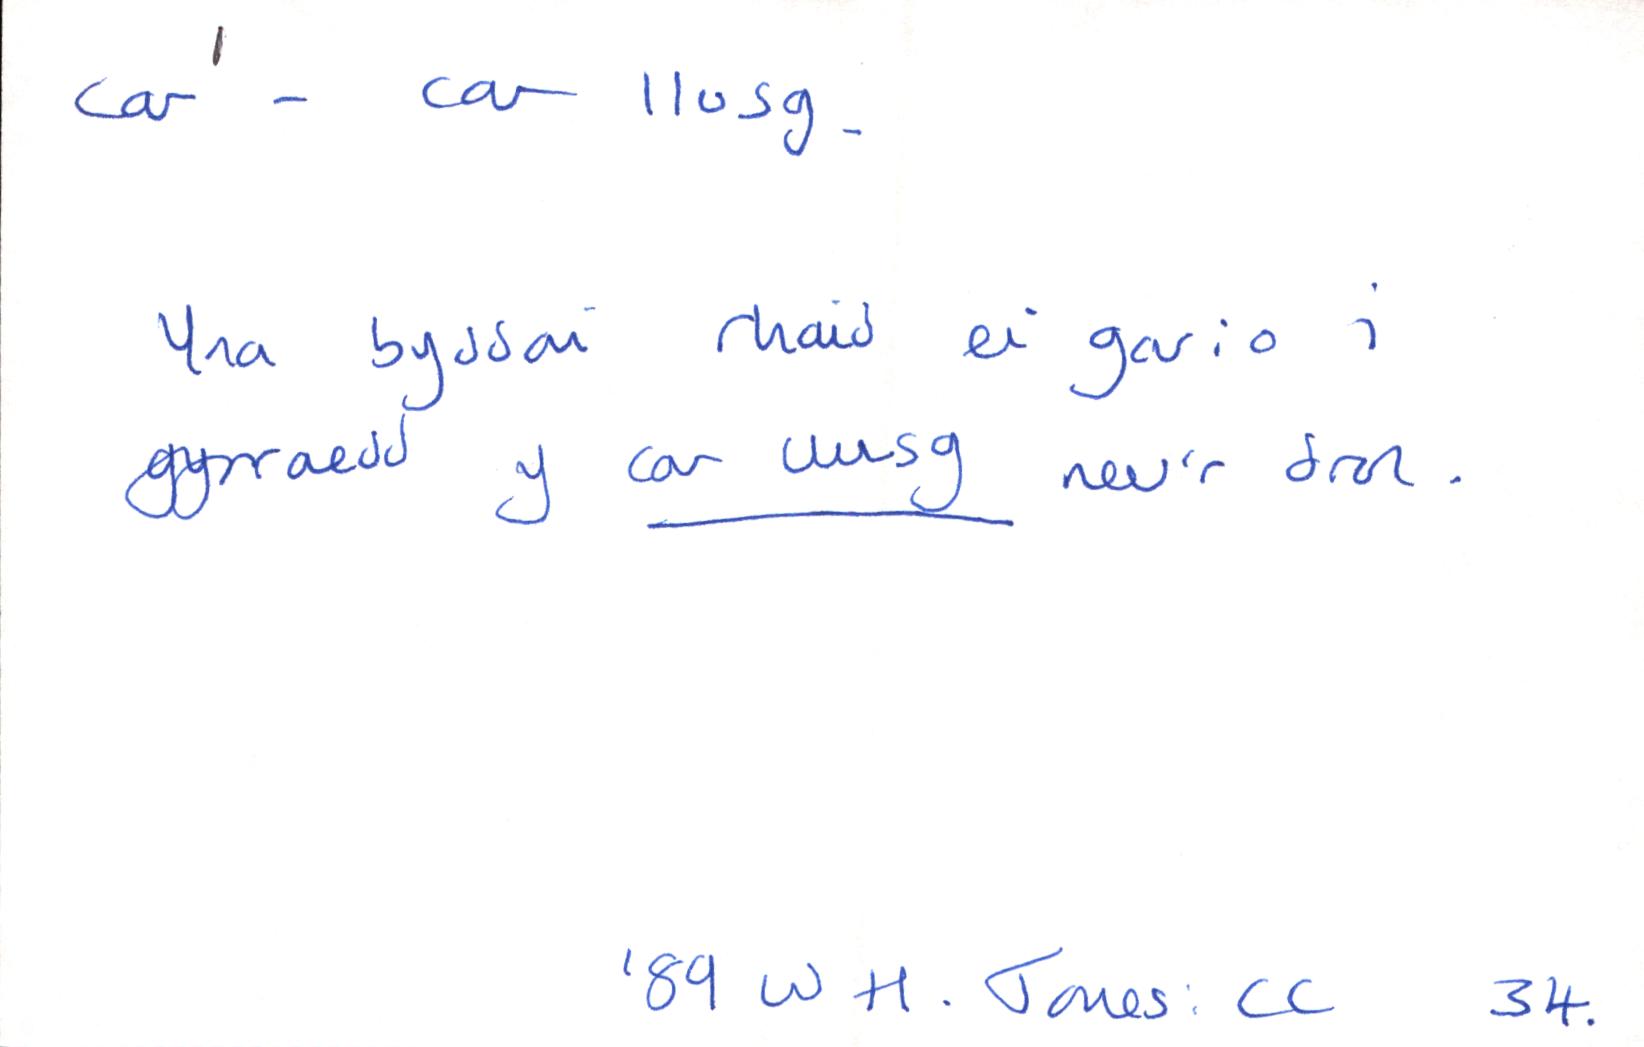 car¹ - car llusg.
Yna byddai rhaid ei gario i
gyrraedd y car llusg neu'r drol.
'89 W H. Jones: CC 34.